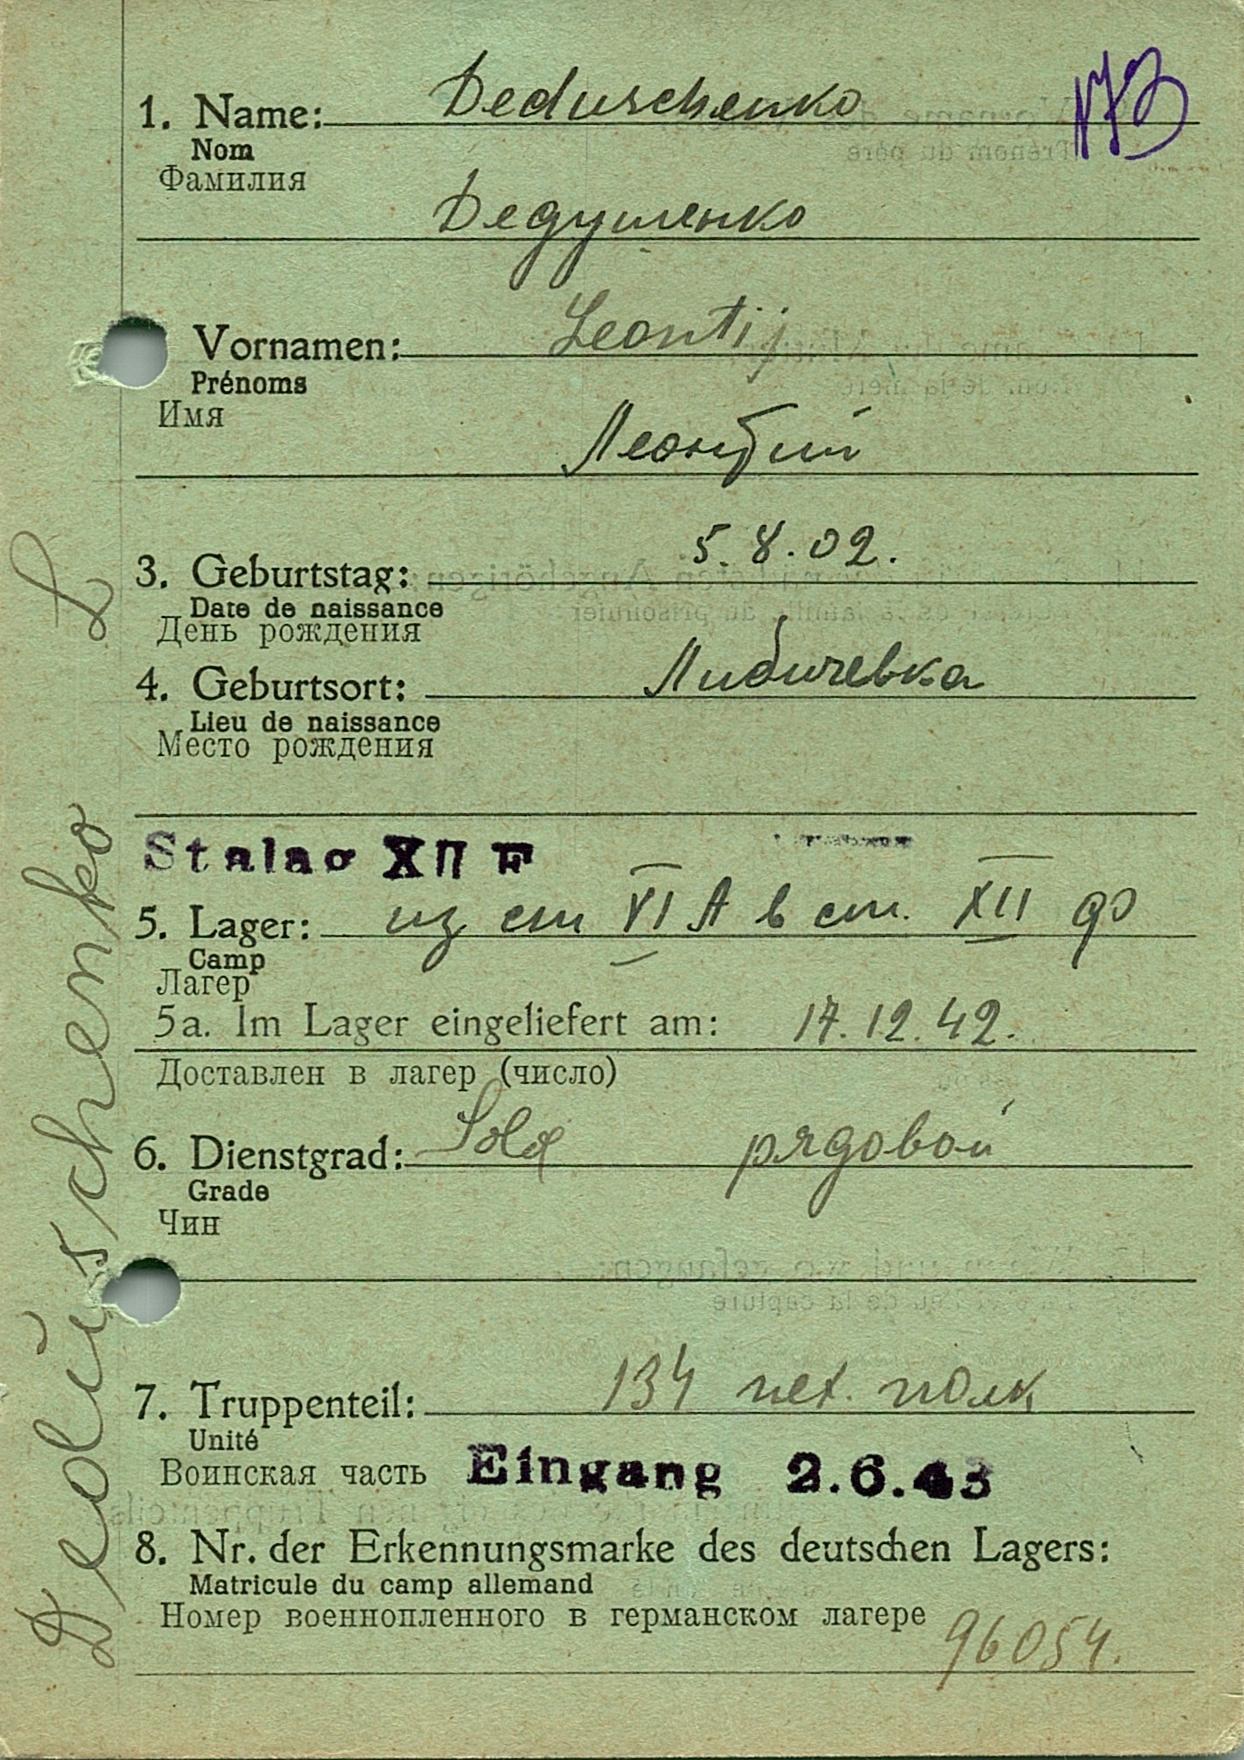 1. Name: Deduschenko
Nom
Фамилия
Дедушенко
Vornamen: Leontij
Prénoms
Имя
Леонтий
3. Geburtstag: 5.8.02.
Date de naissance
День рождения
4. Geburtsort: Либичевка
Lieu de naissance
Место рождения
Stalag XII F
5. Lager: из ст VI A в ст. XII
Camp
Лагер
5a. Im Lager eingeliefert am: 17.12.42.
Доставлен в лагер (число)
6. Dienstgrad: Sold рядовой
Grade
Чин
7. Truppenteil: 134 пех. полк
Unité
Воинская часть Eingang 2.6.43
8. Nr. der Erkennungsmarke des deutschen Lagers:
Matricule du camp allemand
Номер военнопленного в германском лагере 96054.
Dedüschenko L